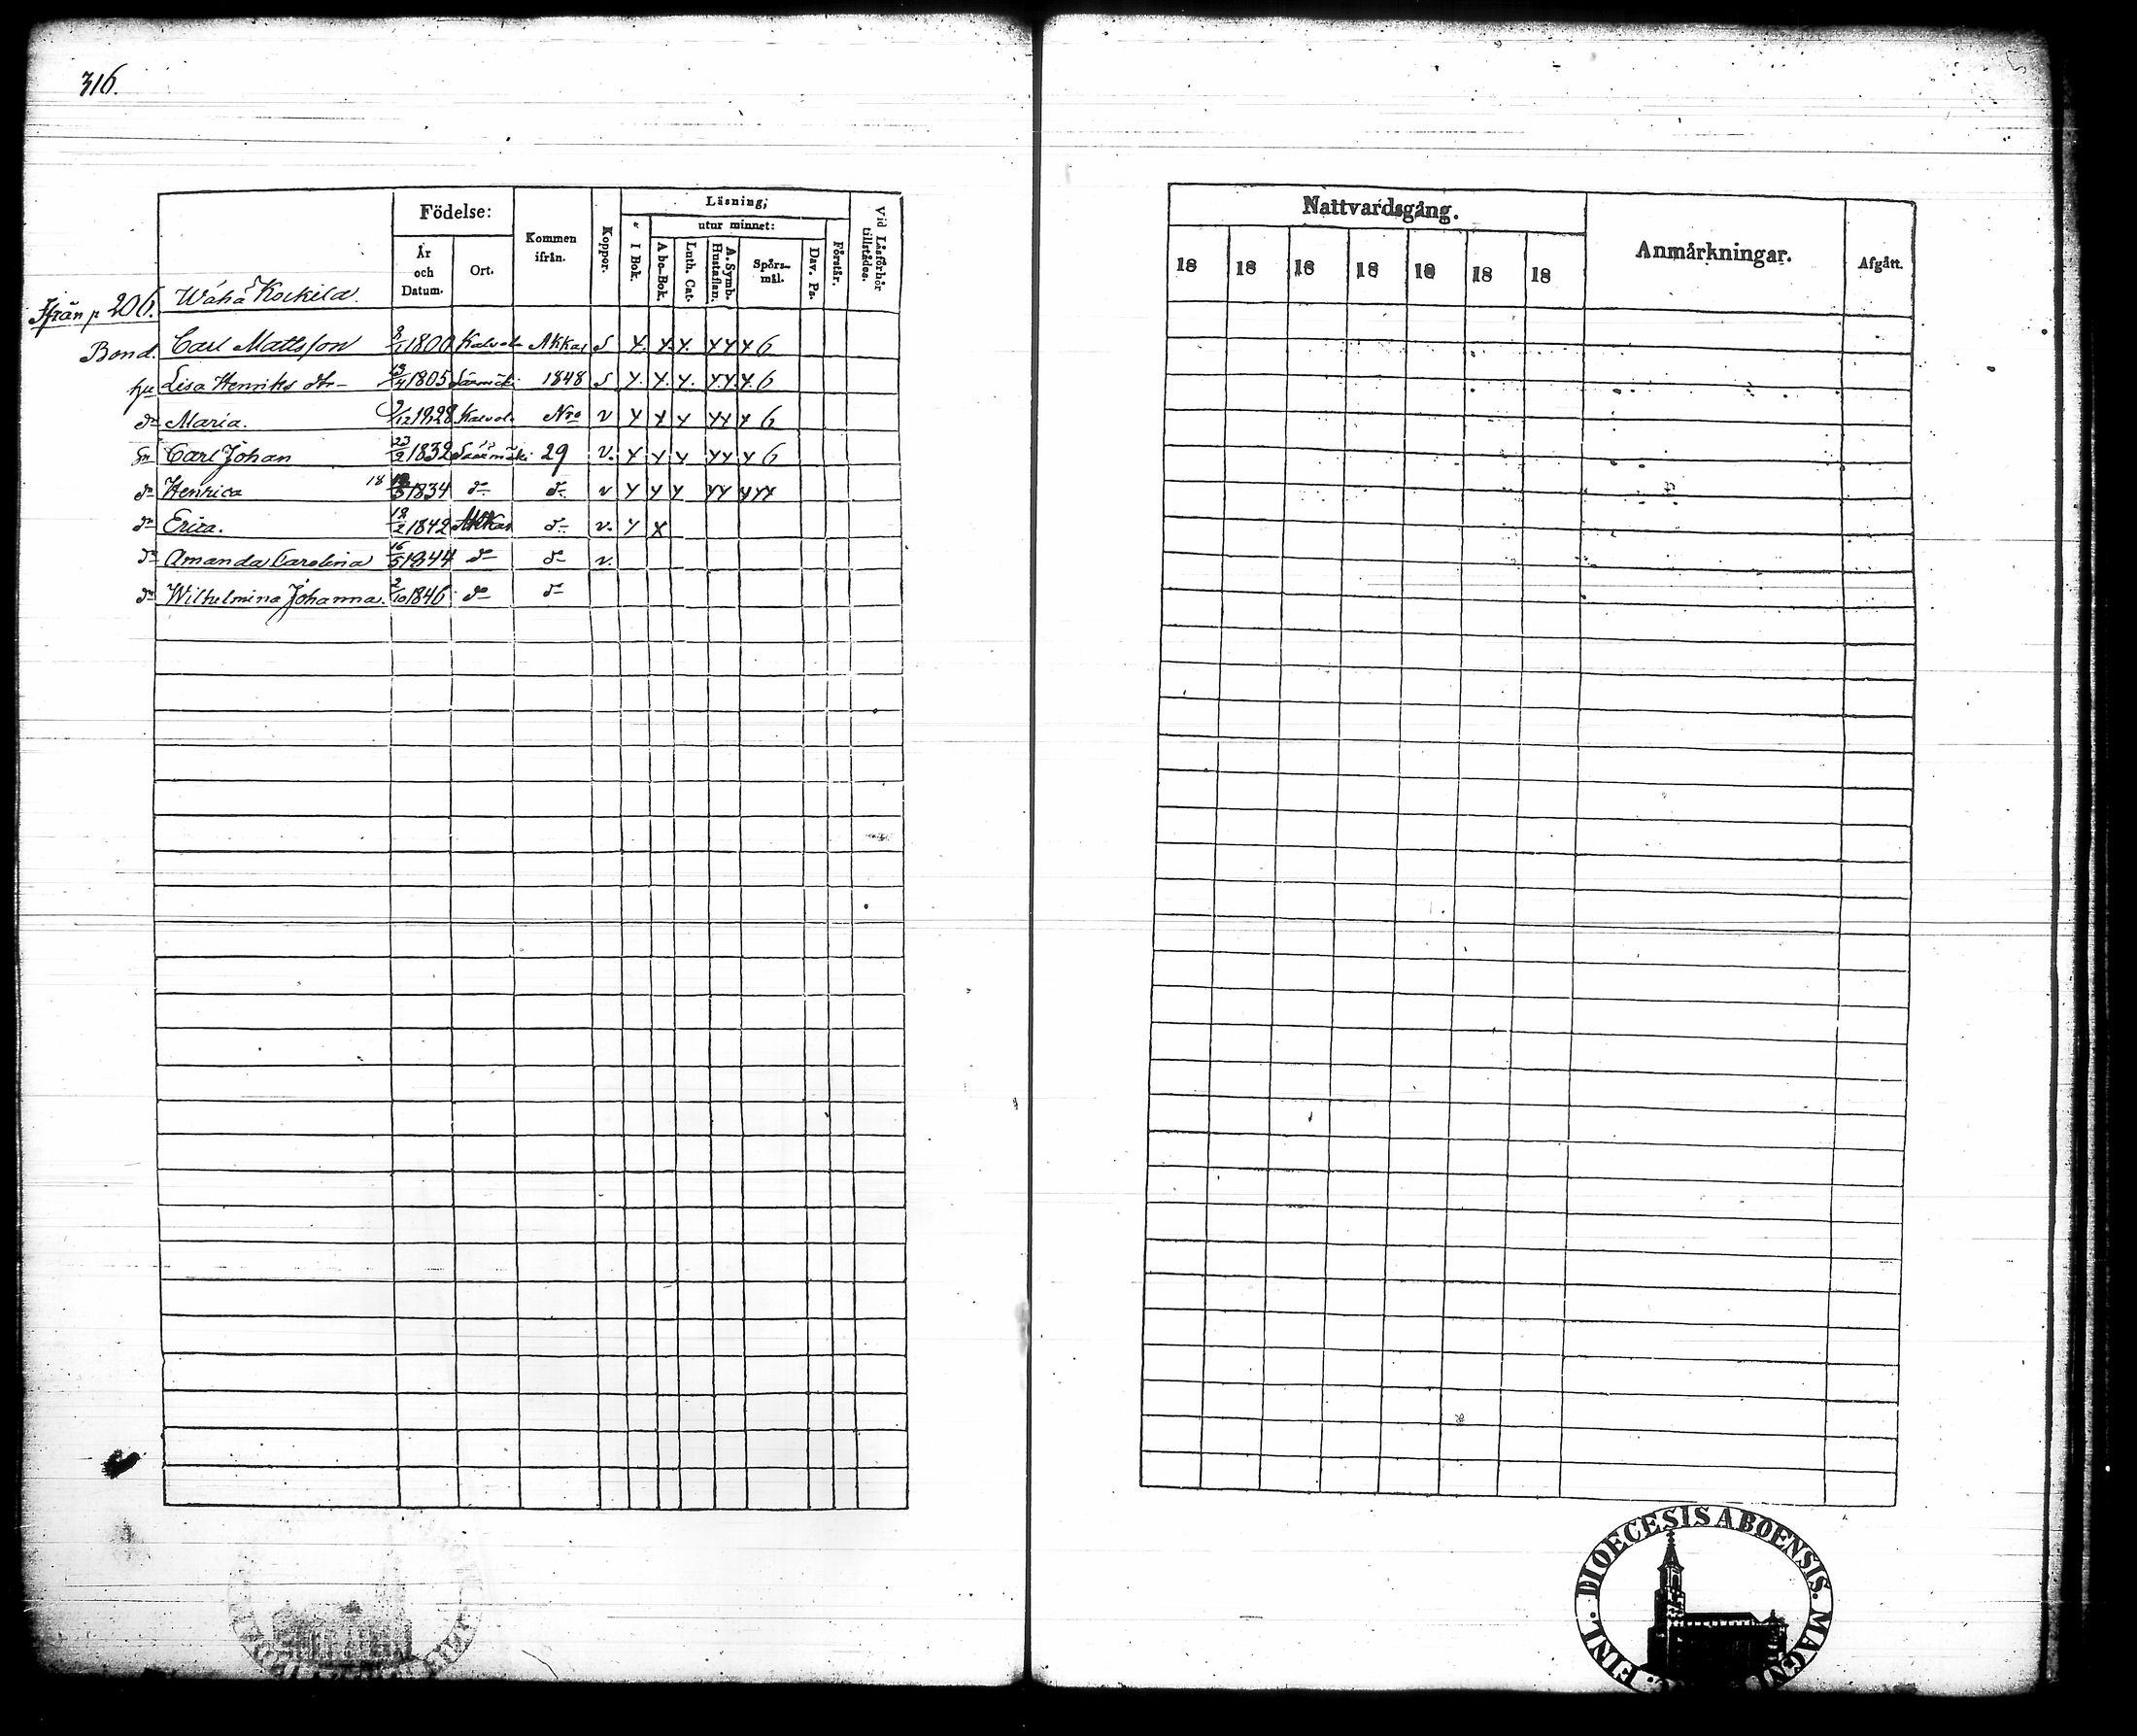 316.
Födelse:
Läsning,
utur minnet:
År och Datum.
Ort.
Kommen ifrån.
Koppor.
I Bok.
Abc-Bok.
Luth. Cat.
A. Symb. Hustaflan.
Spörs-mål.
Dav. Ps.
Förstår.
Vid Läsförhör tillstädes.
Ifrån p 206. Wähä Kockila.
Bond. Carl Mattsson 1800 Kalvola Akkas S Y. Y. Y. Y Y Y 6
hu Lisa Henriks dtr 13/4 1805 Säxmäki 1848 S Y. Y. Y. Y. Y. Y. 6
dr Maria. 9/12 1828 Kalvola Nro v Y Y Y Y Y Y 6
sn Carl Johan 23/2 1832 Sääxmäki 29 v. Y Y Y Y Y Y 6
dr Henrica 18 1834 do do v Y Y Y Y Y Y Y Y
dr Erica. 12/2 1842 Akkas do v. Y X
dr Amanda Carolina 16/5 1844 do do v.
dr Wilhelmina Johanna. 2/10 1846 do do
Nattvardsgång.
Anmärkningar.
Afgått.
18 18 18 18 18 18 18
FINL. DIOECESIS ABOENSIS. MAGNI